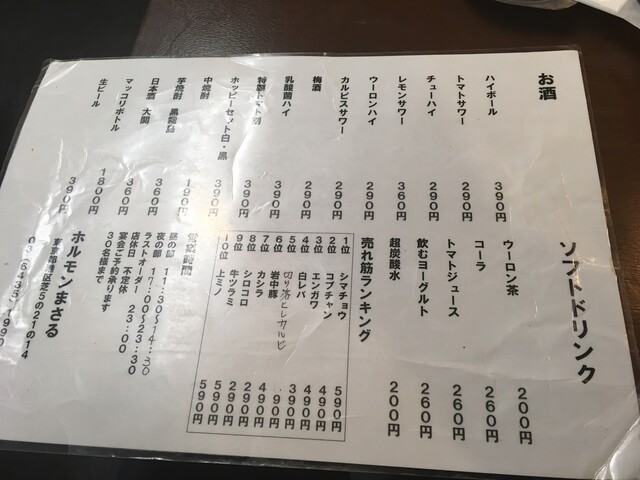 お酒
ハイボール 390円
トマトサワー 290円
チューハイ 290円
レモンサワー 360円
ウーロンハイ 290円
カルピスサワー 290円
梅酒 290円
乳酸菌ハイ 390円
特製トマト割 390円
ホッピーセット白・黒 390円
中焼酎 190円
芋焼酎 黒霧島 360円
日本酒 大関 360円
マッコリボトル 1800円
生ビール 390円
ソフトドリンク
ウーロン茶 200円
コーラ 260円
トマトジュース 260円
飲むヨーグルト 260円
超炭酸水 200円
売れ筋ランキング
1位 シマチョウ 590円
2位 コブチャン 490円
3位 エンガワ 490円
4位 白レバ 390円
5位 切り落としカルビ 90円
6位 岩中豚 490円
7位 カシラ 290円
8位 シロコロ 290円
9位 牛ツラミ 590円
10位 上ミノ 590円
営業時間
昼の部 11:30〜14:30
夜の部 17:00〜23:30
ラストオーダー 23:00
店休日 不定休
宴会ご予約承ります
30名様まで
ホルモンまさる
東京都港区芝5の21の14
03(6435)1990